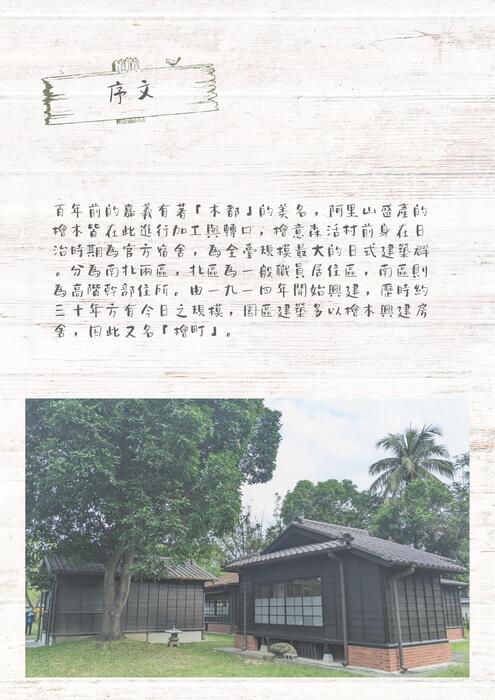 序文
百年前的嘉義有著『木都』的美名，阿里山盛產的
檜木皆在此進行加工與轉口，檜意森活村前身在日
治時期為官方宿舍，為全臺規模最大的日式建築群
。分為南北兩區，北區為一般職員居住區，南區則
為高階幹部住所。由一九一四年開始興建，歷時約
三十年方有今日之規模，園區建築多以檜木興建房
舍，因此又名『檜町』。